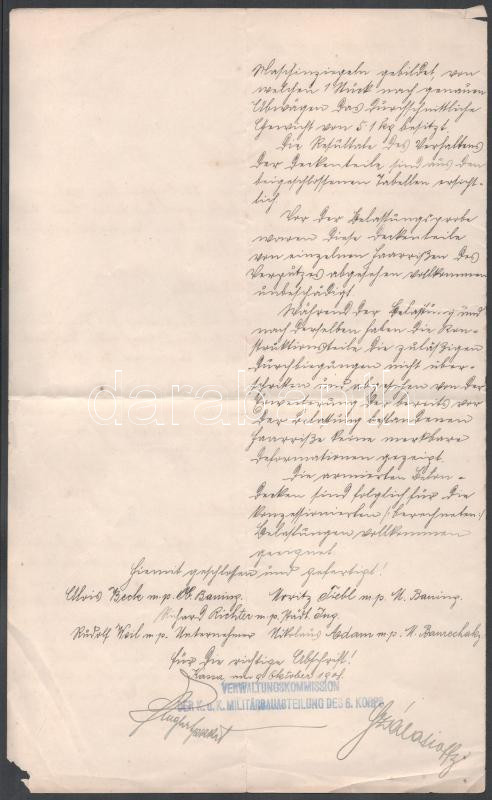 Maschinziegeln gebildet, von
welchen 1 Stück nach genauem
Abwägen das durchschnittliche
Gewicht von 5.1 kg besitzt.
Die Resultate des Verhaltens
der Deckenteile sind aus den
beigeschlossenen Tabellen ersicht-
lich.
Vor der Belastungsprobe
waren diese Deckenteile
von einzelnen Haarrißen des
Verputzes abgesehen vollkommen
unbeschädigt.
Während der Belastung und
nach derselben haben die Kon-
struktionsteile die zuläßigen
Durchbiegungen nicht über-
schritten und abgesehen von der
Erweiterung der bereits vor
der Belastung bestandenen
Haarriße keine merkbare
Deformationen gezeigt.
Die armierten Beton-
decken sind folglich für die
konzessionierten /: berechneten :/
Belastungen vollkommen
geeignet.
Hiemit geschlossen und gefertigt!
Alois Beck m.p. Ob. Bauing. Moritz Diebl m.p. M. Bauing.
Richard Richter m.p. Städt. Ing.
Rudolf Weil m.p. Unternehmer Nikolaus Adam m.p. M. Baurechnfz
Für die richtige Abschrift!
am 9. Oktober 1901.
VERWALTUNGSKOMMISSION
DER K. u. K. MILITÄRBAUABTEILUNG DES 6. KORPS
darabanth